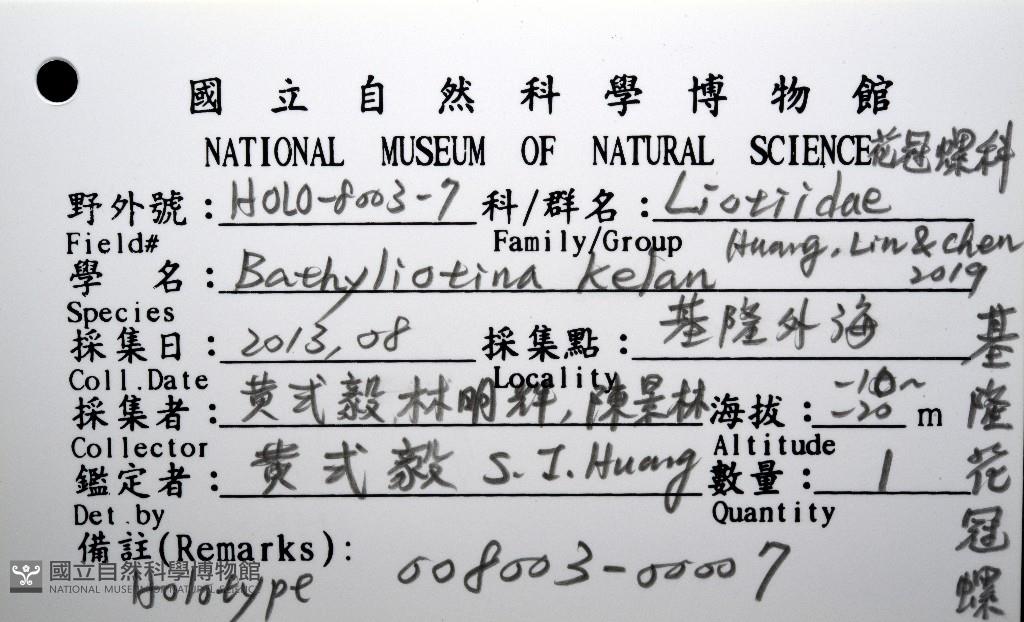 國立自然科學博物館
NATIONAL MUSEUM OF NATURAL SCIENCE 花冠螺科
野外號: HOLO-8003-7 科/群名: Liotiidae
Field# Family/Group Huang, Lin & chen
學名: Bathyliotina kelan 2019
Species
採集日: 2013, 08 採集點: 基隆外海
Coll.Date Locality
採集者: 黄式毅, 林明輝, 陳景林 海拔: -10~-20 m
Collector Altitude
鑑定者: 黄式毅 S. I. Huang 數量: 1
Det.by Quantity
備註(Remarks): 008003-00007
Holotype
基隆花冠螺
國立自然科學博物館
NATIONAL MUSEUM OF NATURAL SCIENCE